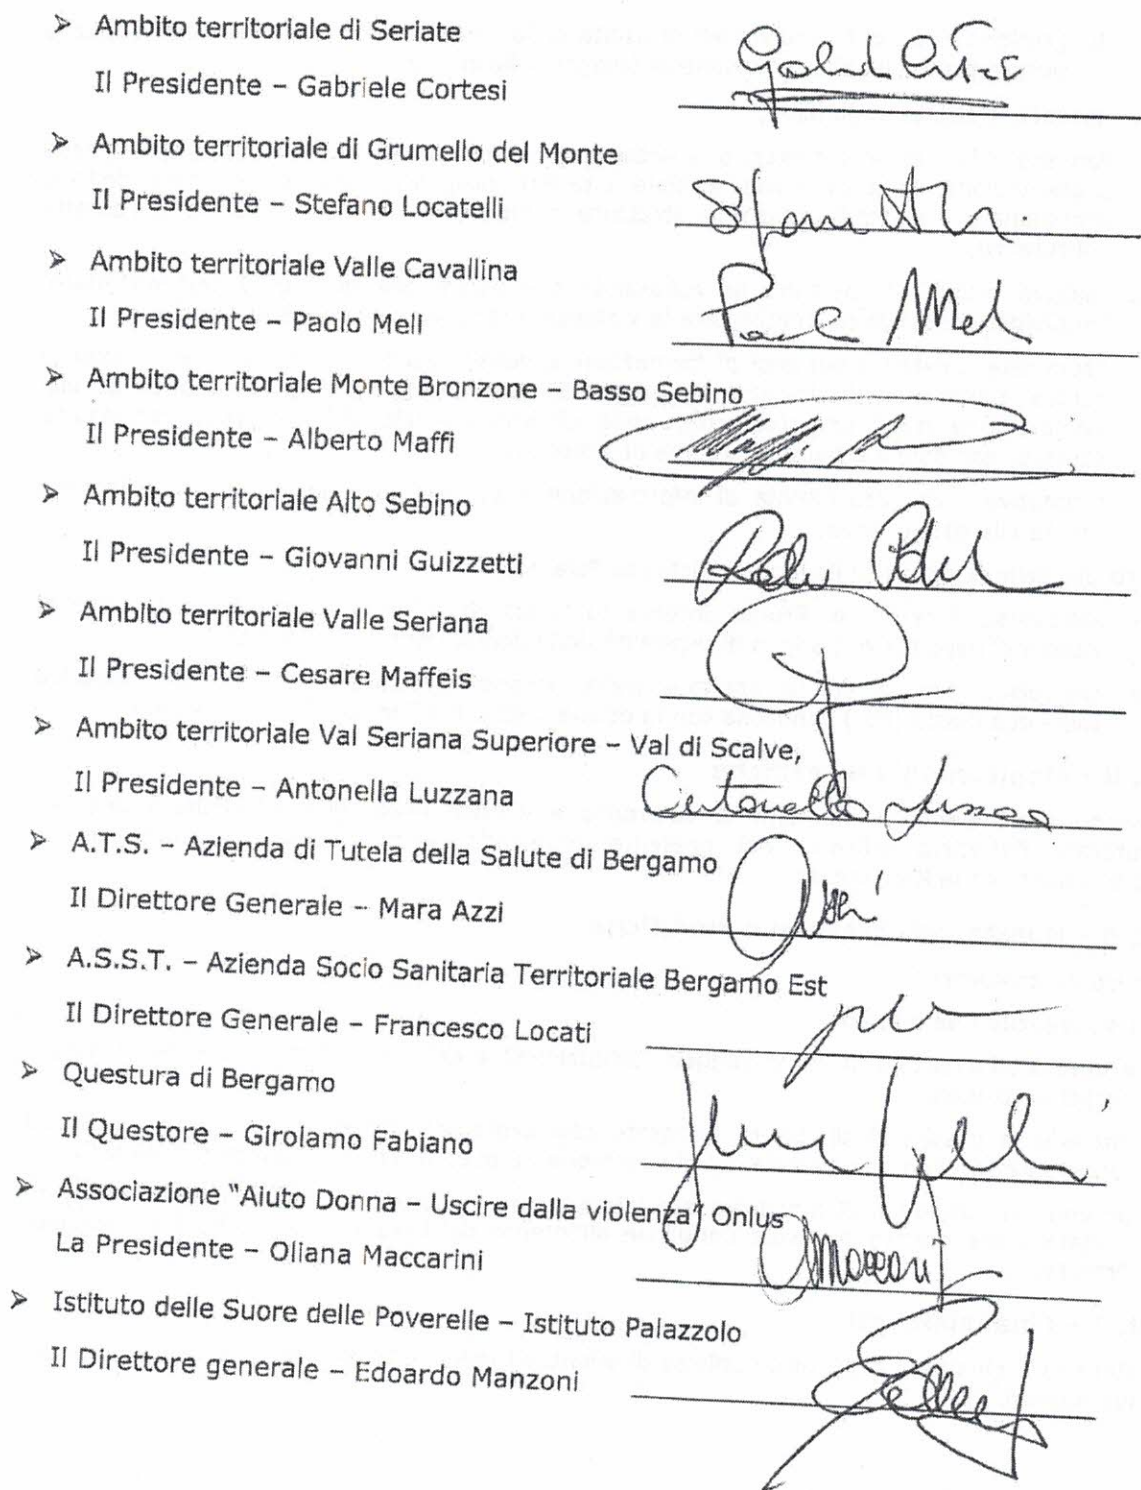 ➢ Ambito territoriale di Seriate
Il Presidente – Gabriele Cortesi
➢ Ambito territoriale di Grumello del Monte
Il Presidente – Stefano Locatelli
➢ Ambito territoriale Valle Cavallina
Il Presidente – Paolo Meli
Paolo Meli
➢ Ambito territoriale Monte Bronzone – Basso Sebino
Il Presidente – Alberto Maffi
➢ Ambito territoriale Alto Sebino
Il Presidente – Giovanni Guizzetti
➢ Ambito territoriale Valle Seriana
Il Presidente – Cesare Maffeis
➢ Ambito territoriale Val Seriana Superiore – Val di Scalve,
Il Presidente – Antonella Luzzana
Antonella
➢ A.T.S. – Azienda di Tutela della Salute di Bergamo
Il Direttore Generale – Mara Azzi
➢ A.S.S.T. – Azienda Socio Sanitaria Territoriale Bergamo Est
Il Direttore Generale – Francesco Locati
➢ Questura di Bergamo
Il Questore – Girolamo Fabiano
➢ Associazione "Aiuto Donna – Uscire dalla violenza" Onlus
La Presidente – Oliana Maccarini
➢ Istituto delle Suore delle Poverelle – Istituto Palazzolo
Il Direttore generale – Edoardo Manzoni